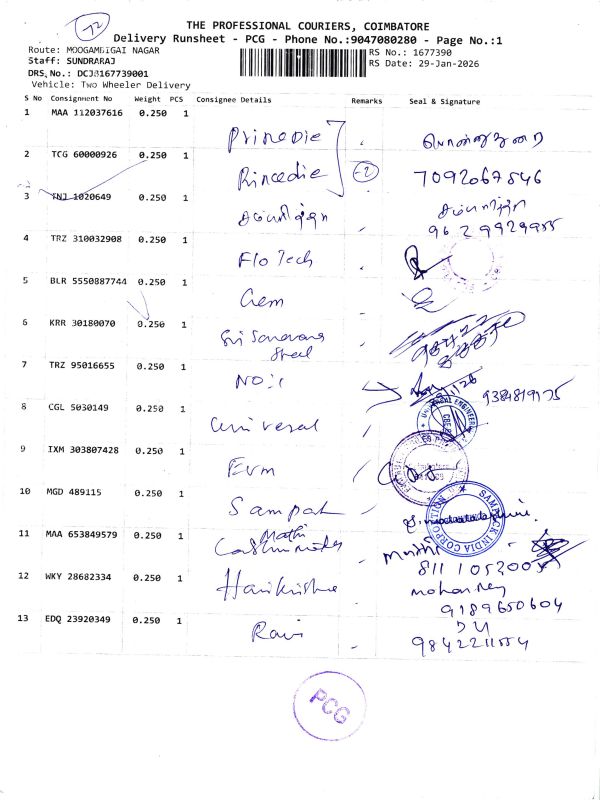 72
THE PROFESSIONAL COURIERS, COIMBATORE
Delivery Runsheet - PCG - Phone No.:9047080280 - Page No.:1
Route: MOOGAMBIGAI NAGAR
RS No.: 1677390
Staff: SUNDRARAJ
RS Date: 29-Jan-2026
DRS No.: DCJ8167739001
Vehicle: Two Wheeler Delivery
S No Consignment No Weight PCS Consignee Details Remarks Seal & Signature
1 MAA 112037616 0.250 1 Princedie பொன்னுதுரை
2 TCG 60000926 0.250 1 Princedie -2 7092067546
3 TNJ 1020649 0.250 1
9629929955
4 TRZ 310032908 0.250 1 Flo Tech
5 BLR 5550887744 0.250 1 Gem
6 KRR 30180070 0.250 1 Sri Saravana Steel
7 TRZ 95016655 0.250 1 NO:1 9384819175
8 CGL 5030149 0.250 1 Universal UNIVERSAL ENGINEERS
9 IXM 303807428 0.250 1 Evm
10 MGD 489115 0.250 1 Sampak SAMPACK INDIA CORPORATION
11 MAA 653849579 0.250 1 Mathi
8111052005
12 WKY 28682334 0.250 1 Harikrishna
9189650604
13 EDQ 23920349 0.250 1 Ravi
9842211554
PCG